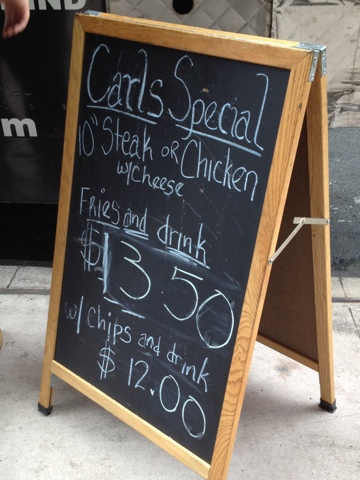 IND
m
Carls Special
10" Steak OR Chicken
w/cheese
Fries and drink
$13.50
w/ chips and drink
$12.00